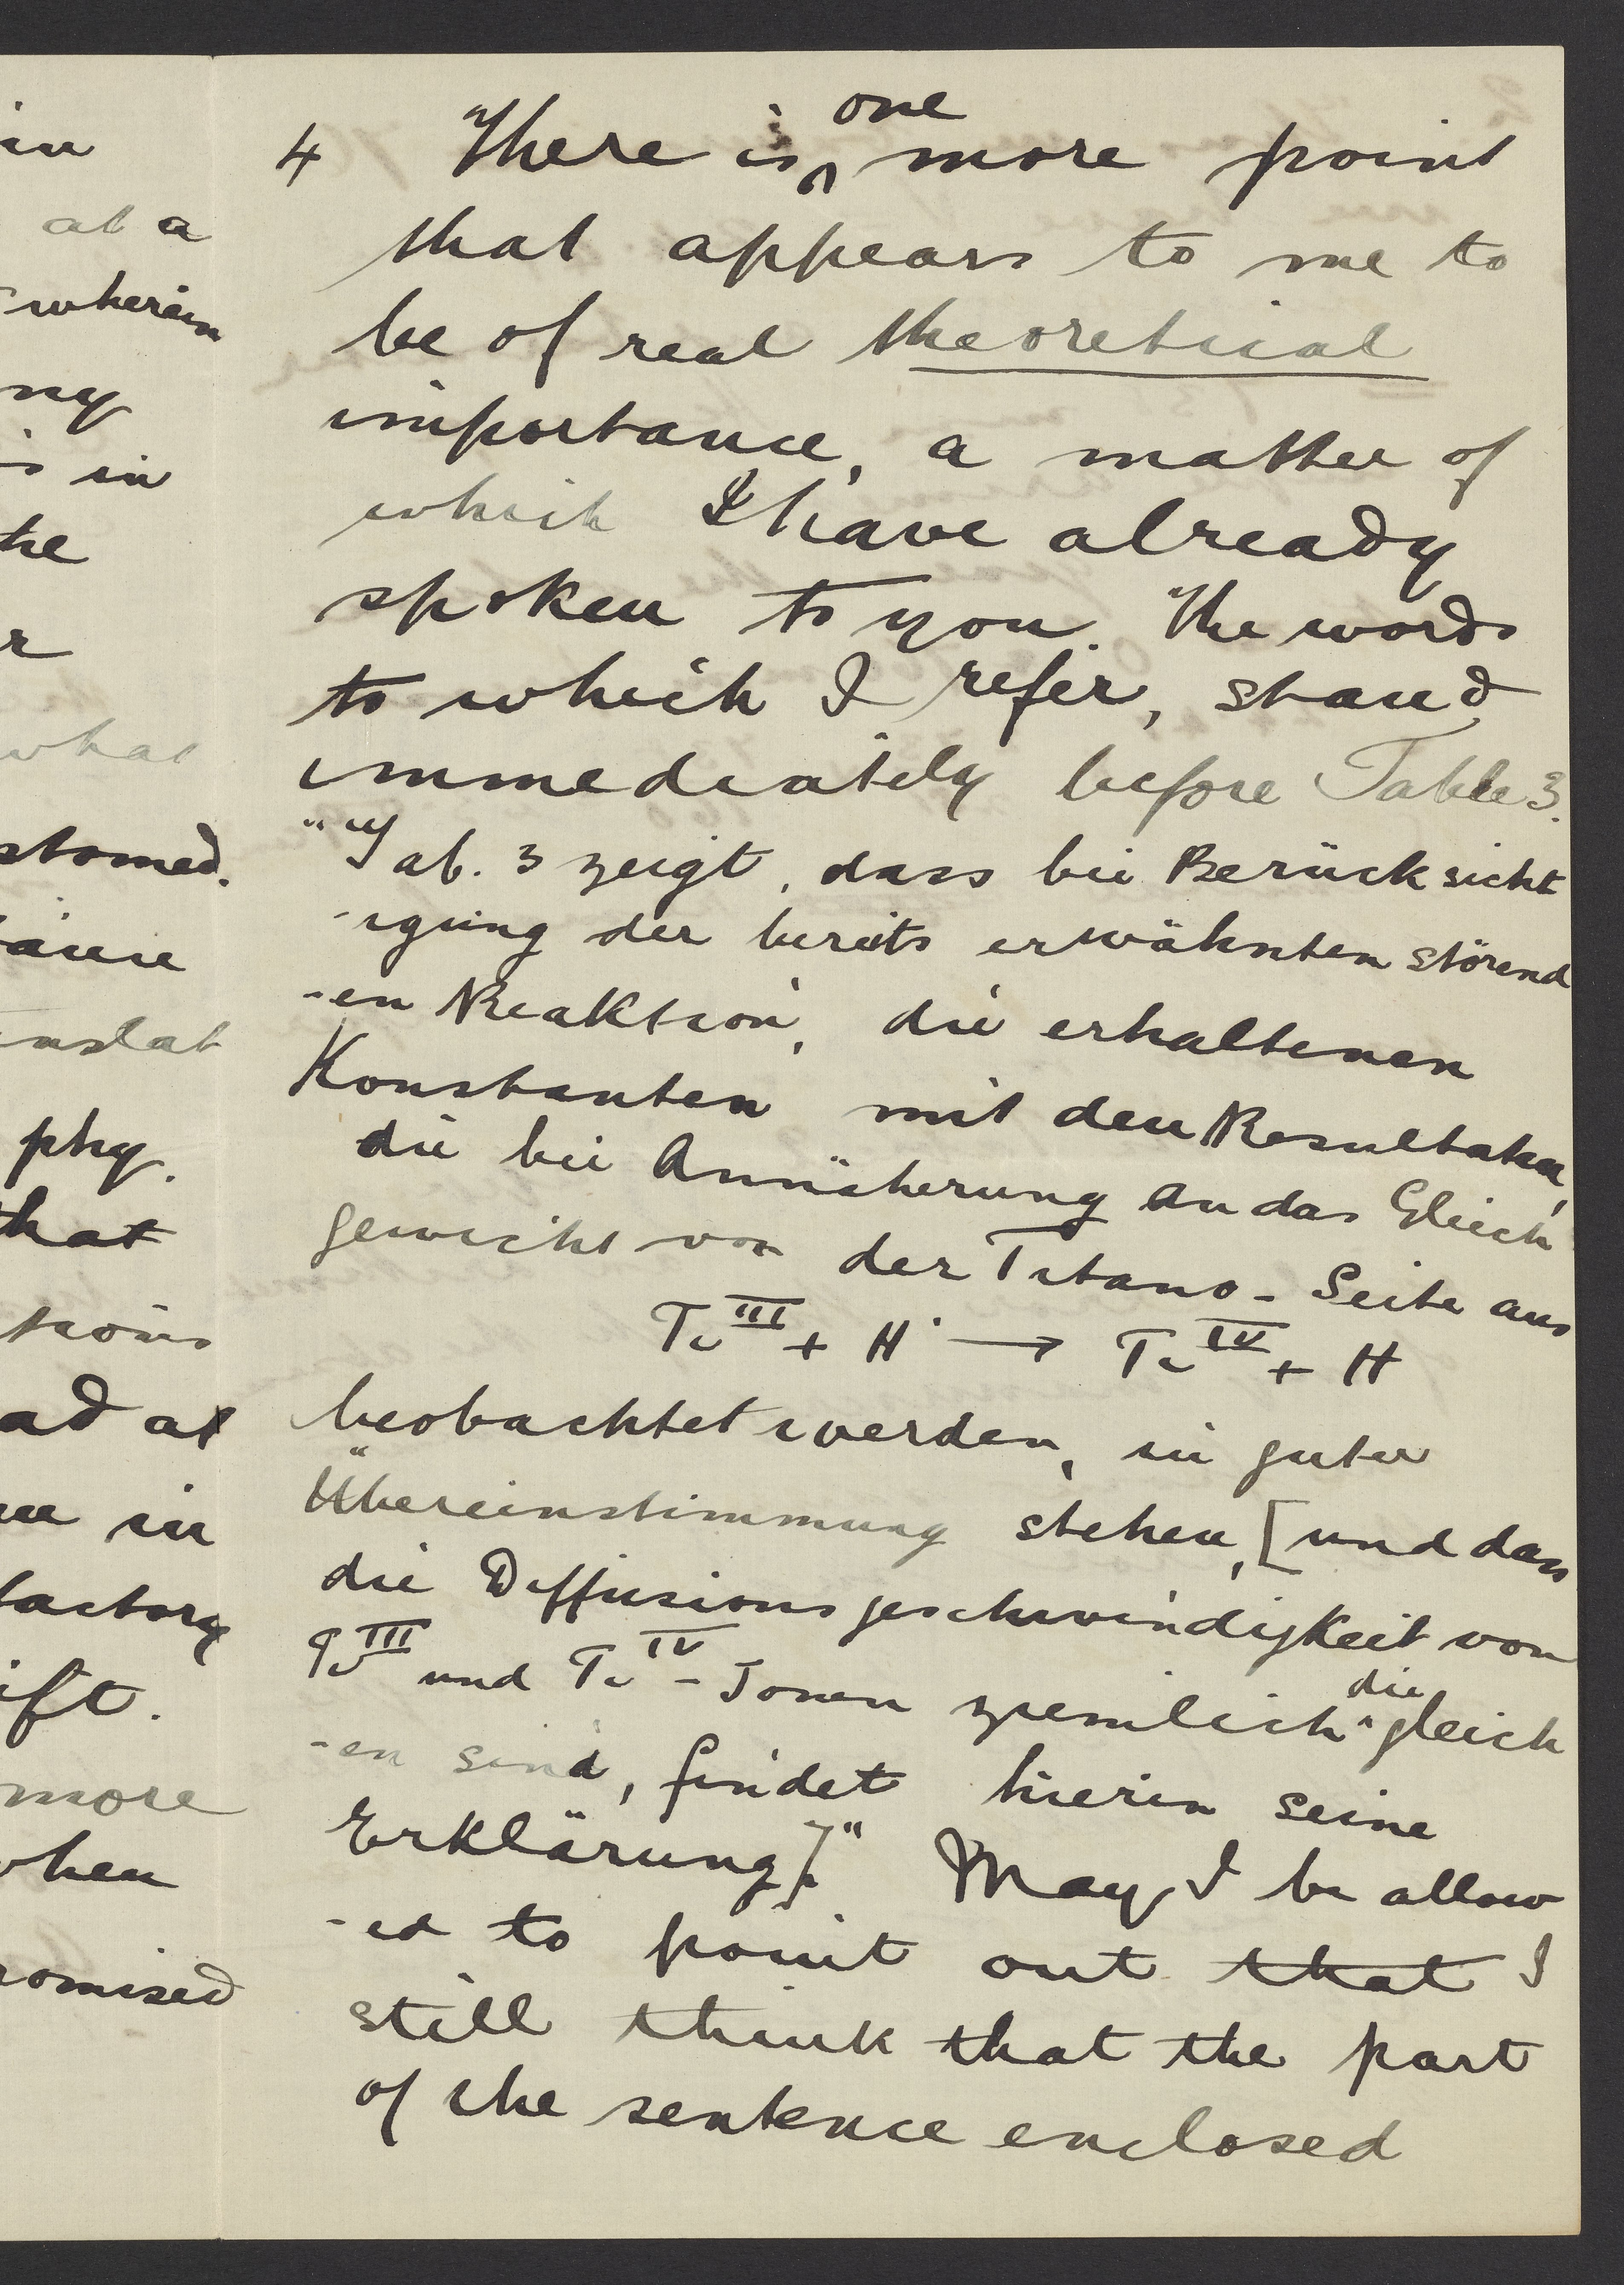 in
at a
wherein
ny
is in
he
r
what
stomed.
phy.
that
tions
ad at
in
factory
ift.
more
when
romised
4 There is one more point
that appears to me to
be of real theoretical
importance, a matter of
which I have already
spoken to you. The words
to which I refer, stand
immediately before Table 3.
"Tab. 3 zeigt, dass bei Berücksicht
-igung der bereits erwähnten störend
-en Reaktion, die erhaltenen
Konstanten mit den Resultaten,
die bei Annäherung an das Gleich
gewicht von der Titano-Seite aus
Ti III + H˙ → Ti IV + H
beobachtet werden, in guter
Übereinstimmung stehen, [und dass
die Diffusionsgeschwindigkeit von
Ti III und Ti IV - Ionen ziemlich die gleich
-en sind, findet hierin seine
Erklärung]." May I be allow
-ed to point out that I
still think that the part
of the sentence enclosed